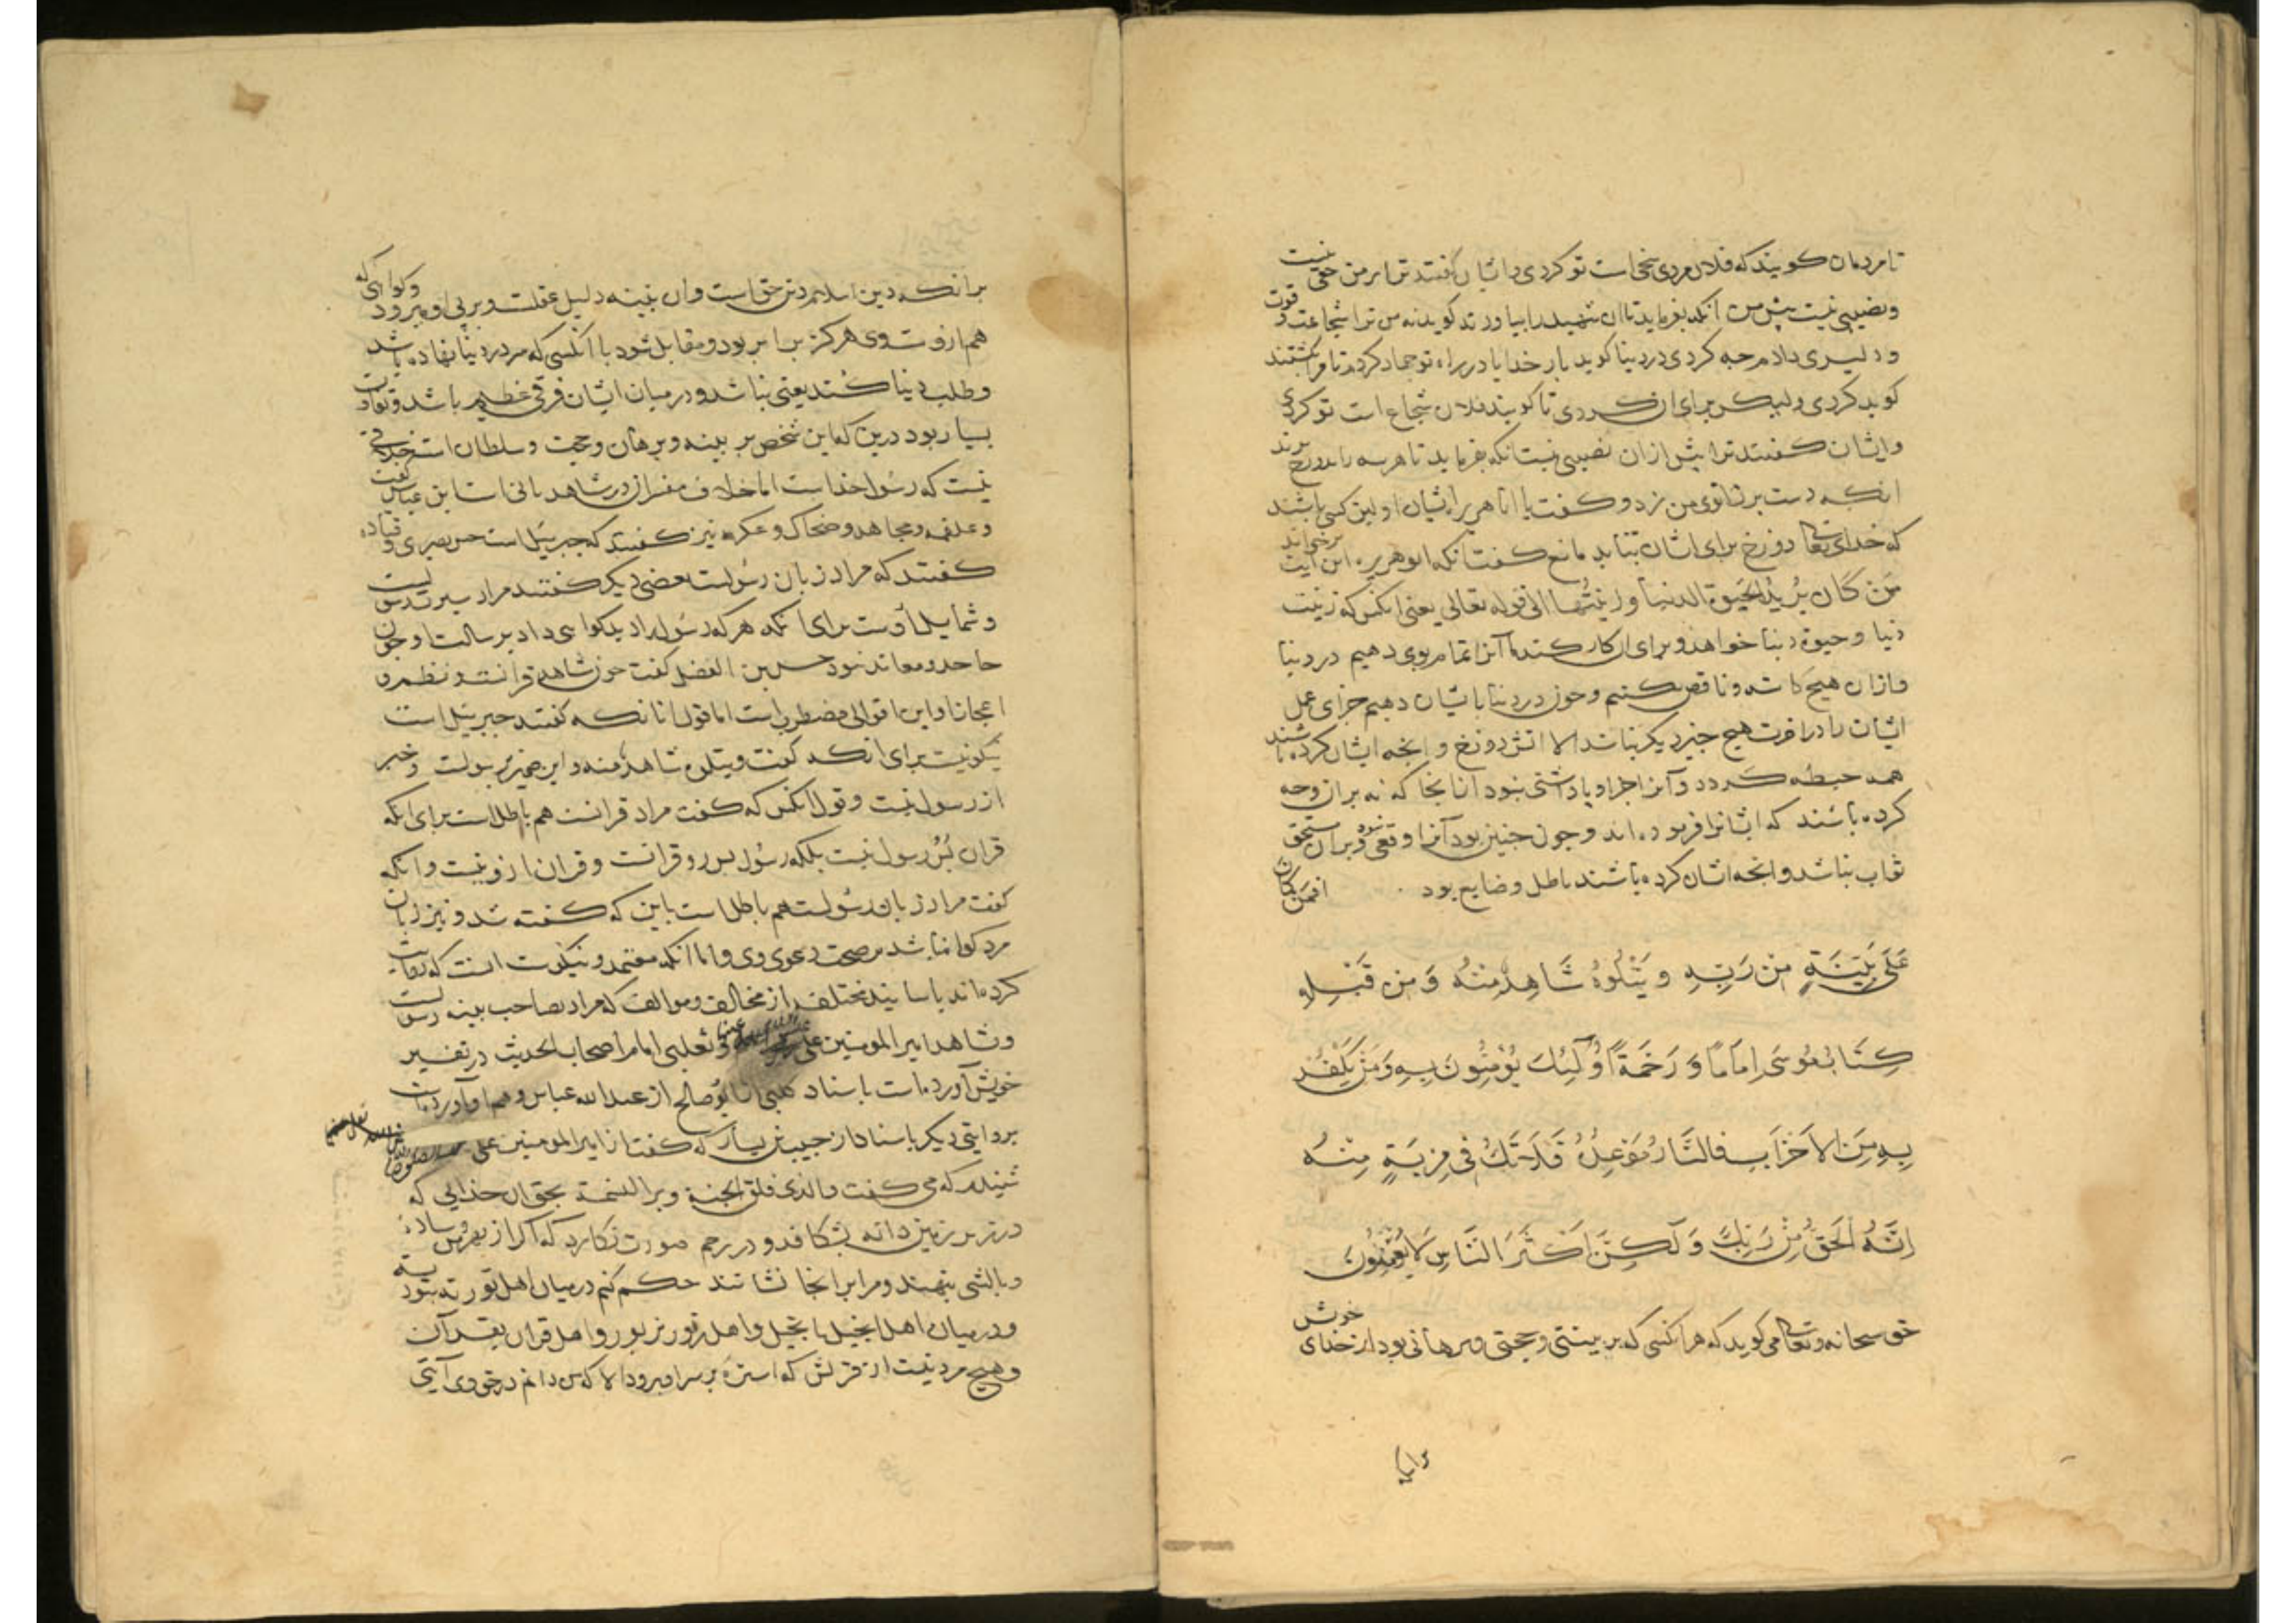 تا مردمان کویند که فلان مردی سخی است تو کردی و ایشان کفتند ترا بر من حقی نیست
و نصیبی نیست پیش من آنکه بفرماید تا ان شهید را بیاورند کوید نه من ترا شجاعت و قوت
و دلیری دادم چه کردی در دنیا کوید بار خدایا در راه تو جهاد کردم تا مرا بکشتند
کوید کردی ولیکن برای ان کردی تا کویند فلان شجاع است تو کردی
و ایشان کفتند ترا بیش ازان نصیبی نیست انکه بفرماید تا هر سه را بدوزخ برند
انکه دست بر زانوی من زد و کفت یا ابا هریره ایشان اولین کسی باشند
که خدای تعا دوزخ برای ایشان بتابد مانع کفت انکه ابوهریره این آیت برخواند
مَن کَانَ یُریدُ الحَیوةَ الدنیا و زینتُها الی قوله تعالی یعنی انکس که زینت
دنیا و حیوة دنیا خواهد و برای ان کار کند ما آنرا تمام بوی دهیم در دنیا
و ازان هیچ کاسته و ناقص نکنیم و چون در دنیا بایشان دهیم جزای عمل
ایشان را در اخرت هیچ چیز دیکر نباشد الا اتش دوزخ و انچه ایشان کرده باشند
همه حبطه کردد و آنرا اجر و پاداشتی نبود از انجا که نه بران وجه
کرده باشند که ایشانرا فرموده اند و چون چنین بود آنرا وقعی نبود و بران مستحق
ثواب نباشد و انچه ایشان کرده باشند باطل و ضایع بود افمن کان
عَلَی بَیِّنَةٍ مِنْ رَبِّهِ وَ یَتْلُوهُ شَاهِدٌ مِنْهُ وَ مِن قَبْلِهِ
کِتَابُ مُوسَی اِمَامًا وَ رَحْمَةً أُولَئِكَ یُؤْمِنُونَ بِهِ وَ مَنْ یَکْفُر
بِهِ مِنَ الاَحْزَابِ فالنَّارُ مَوْعِدُهُ فَلَا تَكُ فِی مِرْیَةٍ مِنْهُ
اِنَّهُ الْحَقُّ مِنْ رَبِّكَ وَ لَکِنَّ اَکْثَرَ النَّاسِ لَا یُؤْمِنُونَ
حق سبحانه و تعا می کوید که هر انکسی که بر بینتی و حجتی و برهانی بود از خدای خویش
برانکه
برانکه دین اسلام دین حق است وان بینه دلیل عقلست و بر پی او میرود و کواهی که
هم ازوست وی هرکز برابر بود و مقابل شود با انکسی که مرد دنیا نهاده باشد
و طلب دنیا کند یعنی نباشد و در میان ایشان فرقی عظیم باشد و تفاوت
بسیار بود درین که این شخص بر بینه و برهان و حجت و سلطان است خلافی
نیست که رسول خداست اما خلاف مفسران در شاهد بانی است ابن عباس کفت
و علقمه و مجاهد و ضحاک و عکرمه نیز کفتند که جبرییل است حسن بصری و قتاده
کفتند که مراد زبان رسولست بعضی دیکر کفتند مراد سیرت رسولست
و شمایل اوست برای انکه هر که رسول را دید کواهی داد بر رسالت او چون
جاحد و معاند نبود حسین بن الفضل کفت چون شاهد قرانست و نظم و
اعجاز او این اقوالی مضطرب است اما قول انانکه کفتند جبرییل است
نیکو نیست برای انکه کفت و یتلوه شاهد منه و این ضمیر رسولست و خبر
از رسول نیست و قول انکس که کفت مراد قرانست هم باطل است برای انکه
قران پس رسول نیست بلکه رسول پس رو قرانست و قران ازو نیست و انکه
کفت مراد زبان رسولست هم باطل است باین که کفته شد و نیز زبان
مرد کوا نباشد بر صحت دعوی وی و اما انکه معتمد و نیکوست انست که روایت
کرده اند باسانید مختلف از مخالف و موالف که مراد بصاحب بینه رسولست
و شاهد امیر المومنین علی و ثعلبی امام اصحاب الحدیث در تفسیر
خویش آورده است باسناد کلبی از ابو صالح از عبد الله عباس و هم او آورده است
بروایتی دیکر باسناد از حبیب بن یسار که کفت از امیر المومنین علی
شنیدم که می کفت والذی فلق الحبة و برا النسمة بحق ان خدایی که
در زیر زمین دانه بشکافد و در رحم صورت نکارد که اکر از بهر من وساده
و بالشی بنهند و مرا بر انجا نشانند حکم کنم در میان اهل توریة بتوریة
و در میان اهل انجیل بانجیل و اهل زبور بزبور و اهل قران بقرآن
و هیچ مرد نیست از قریش که استره بر سر او برود الا که من دانم در حق وی آیتی